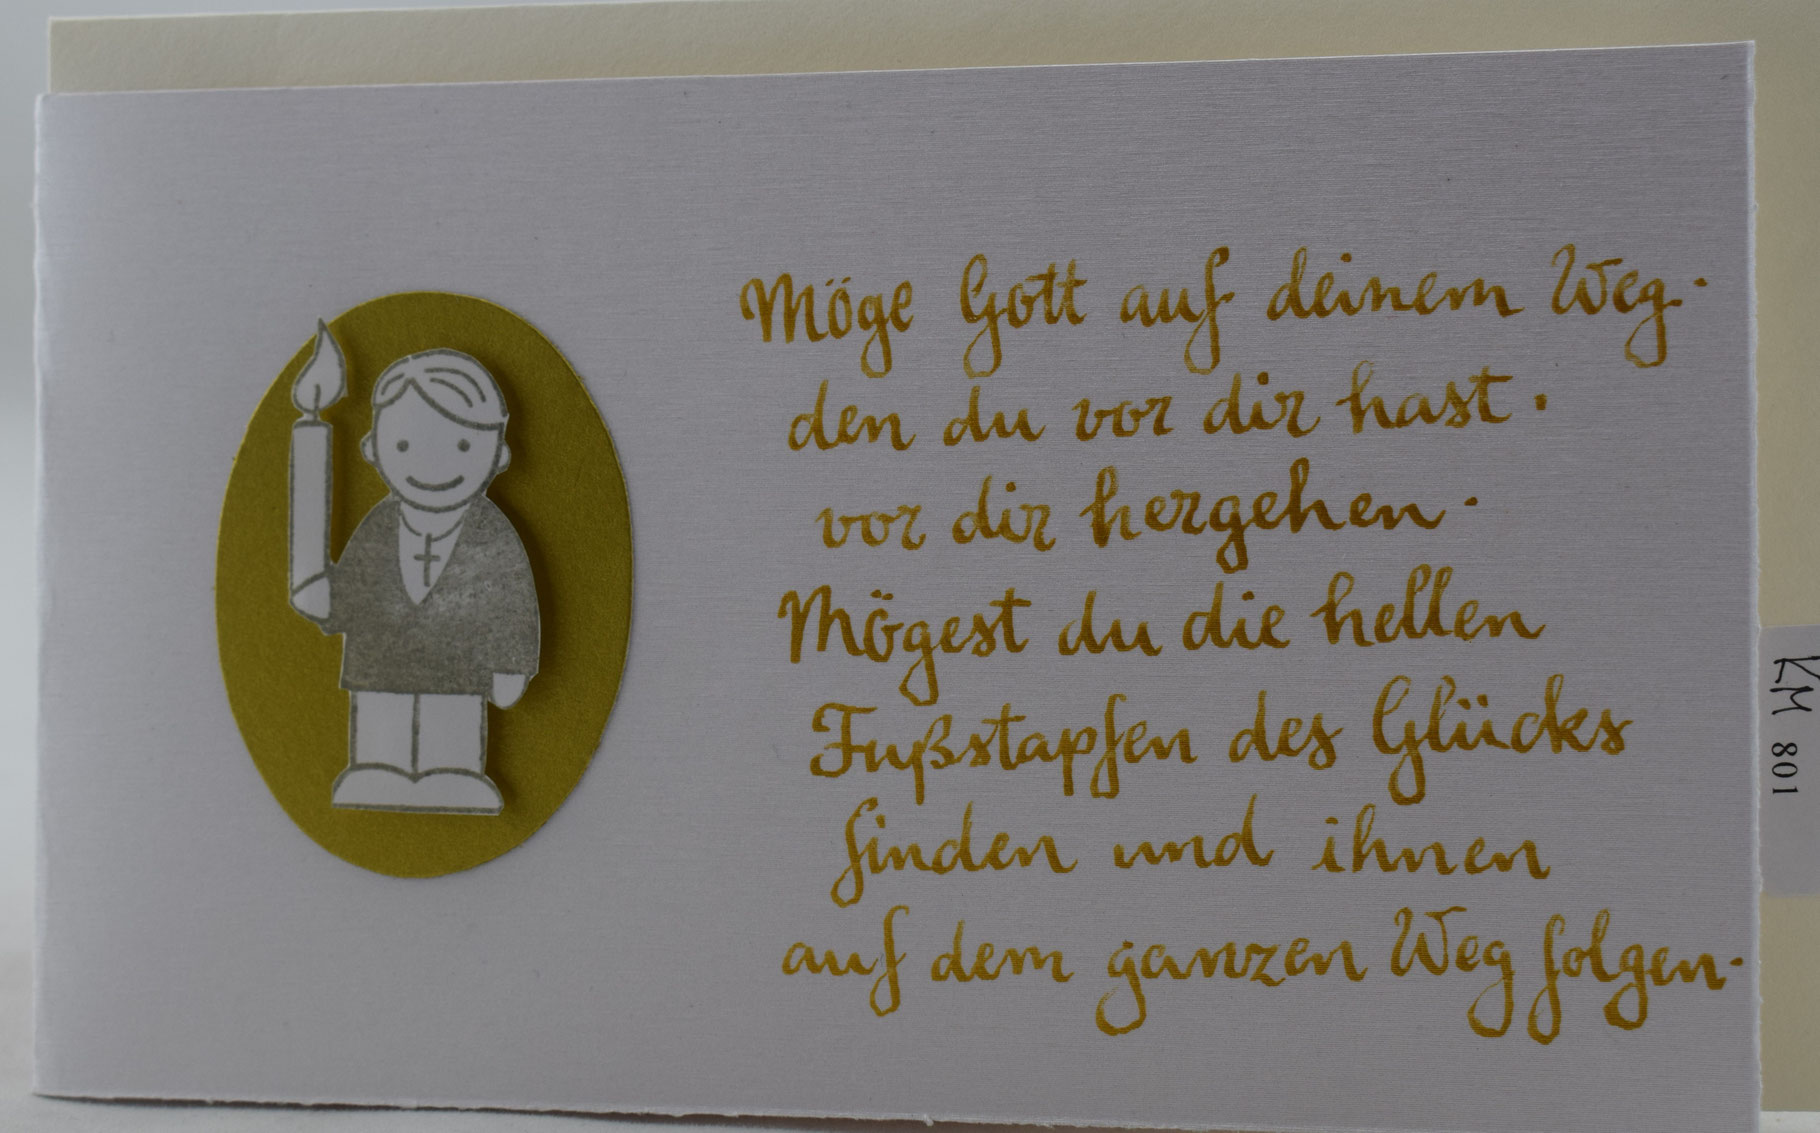 Möge Gott auf deinem Weg.
den du vor dir hast.
vor dir hergehen.
Mögest du die hellen
Fußstapfen des Glücks
finden und ihnen
auf dem ganzen Weg folgen.
KM 801